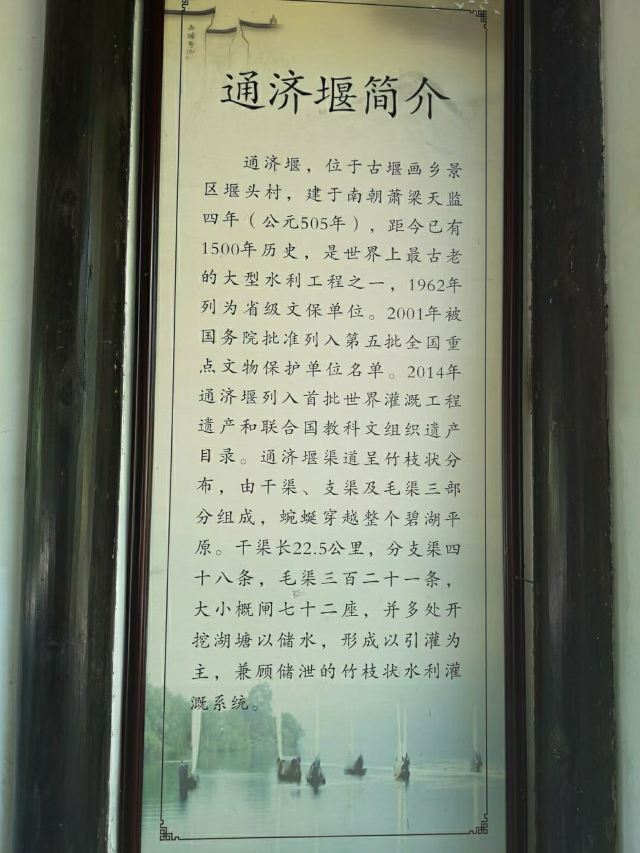 通济堰简介
通济堰，位于古堰画乡景
区堰头村，建于南朝萧梁天监
四年（公元505年），距今已有
1500年历史，是世界上最古老
的大型水利工程之一，1962年
列为省级文保单位。2001年被
国务院批准列入第五批全国重
点文物保护单位名单。2014年
通济堰列入首批世界灌溉工程
遗产和联合国教科文组织遗产
目录。通济堰渠道呈竹枝状分
布，由干渠、支渠及毛渠三部
分组成，蜿蜒穿越整个碧湖平
原。干渠长22.5公里，分支渠四
十八条，毛渠三百二十一条，
大小概闸七十二座，并多处开
挖湖塘以储水，形成以引灌为
主，兼顾储泄的竹枝状水利灌
溉系统。